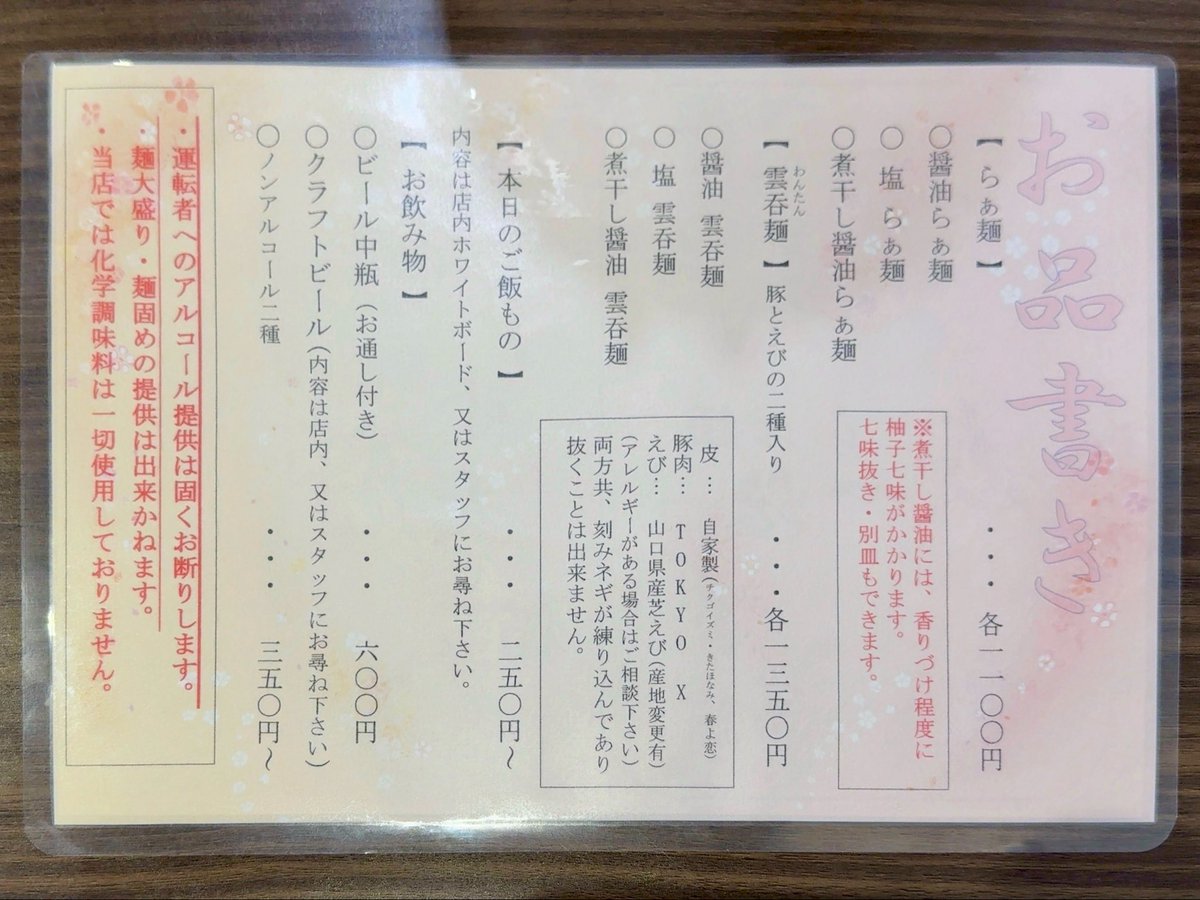 お品書き
【らぁ麺】 ・・・各一一〇〇円
〇醤油らぁ麺
〇塩 らぁ麺
〇煮干し醤油らぁ麺
※煮干し醤油には、香りづけ程度に
柚子七味がかかります。
七味抜き・別皿もできます。
【雲呑麺】豚とえびの二種入り ・・・各一三五〇円
わんたん
〇醤油 雲呑麺
〇塩 雲呑麺
〇煮干し醤油 雲呑麺
皮… 自家製(チクゴイズミ・きたほなみ、春よ恋)
豚肉… TOKYO X
えび… 山口県産芝えび(産地変更有)
(アレルギーがある場合はご相談下さい)
両方共、刻みネギが練り込んであり
抜くことは出来ません。
【本日のご飯もの】 ・・・ 二五〇円～
内容は店内ホワイトボード、又はスタッフにお尋ね下さい。
【お飲み物】
〇ビール中瓶(お通し付き) ・・・ 六〇〇円
〇クラフトビール(内容は店内、又はスタッフにお尋ね下さい)
〇ノンアルコール二種 ・・・ 三五〇円～
・運転者へのアルコール提供は固くお断りします。
・麺大盛り・麺固めの提供は出来かねます。
・当店では化学調味料は一切使用しておりません。